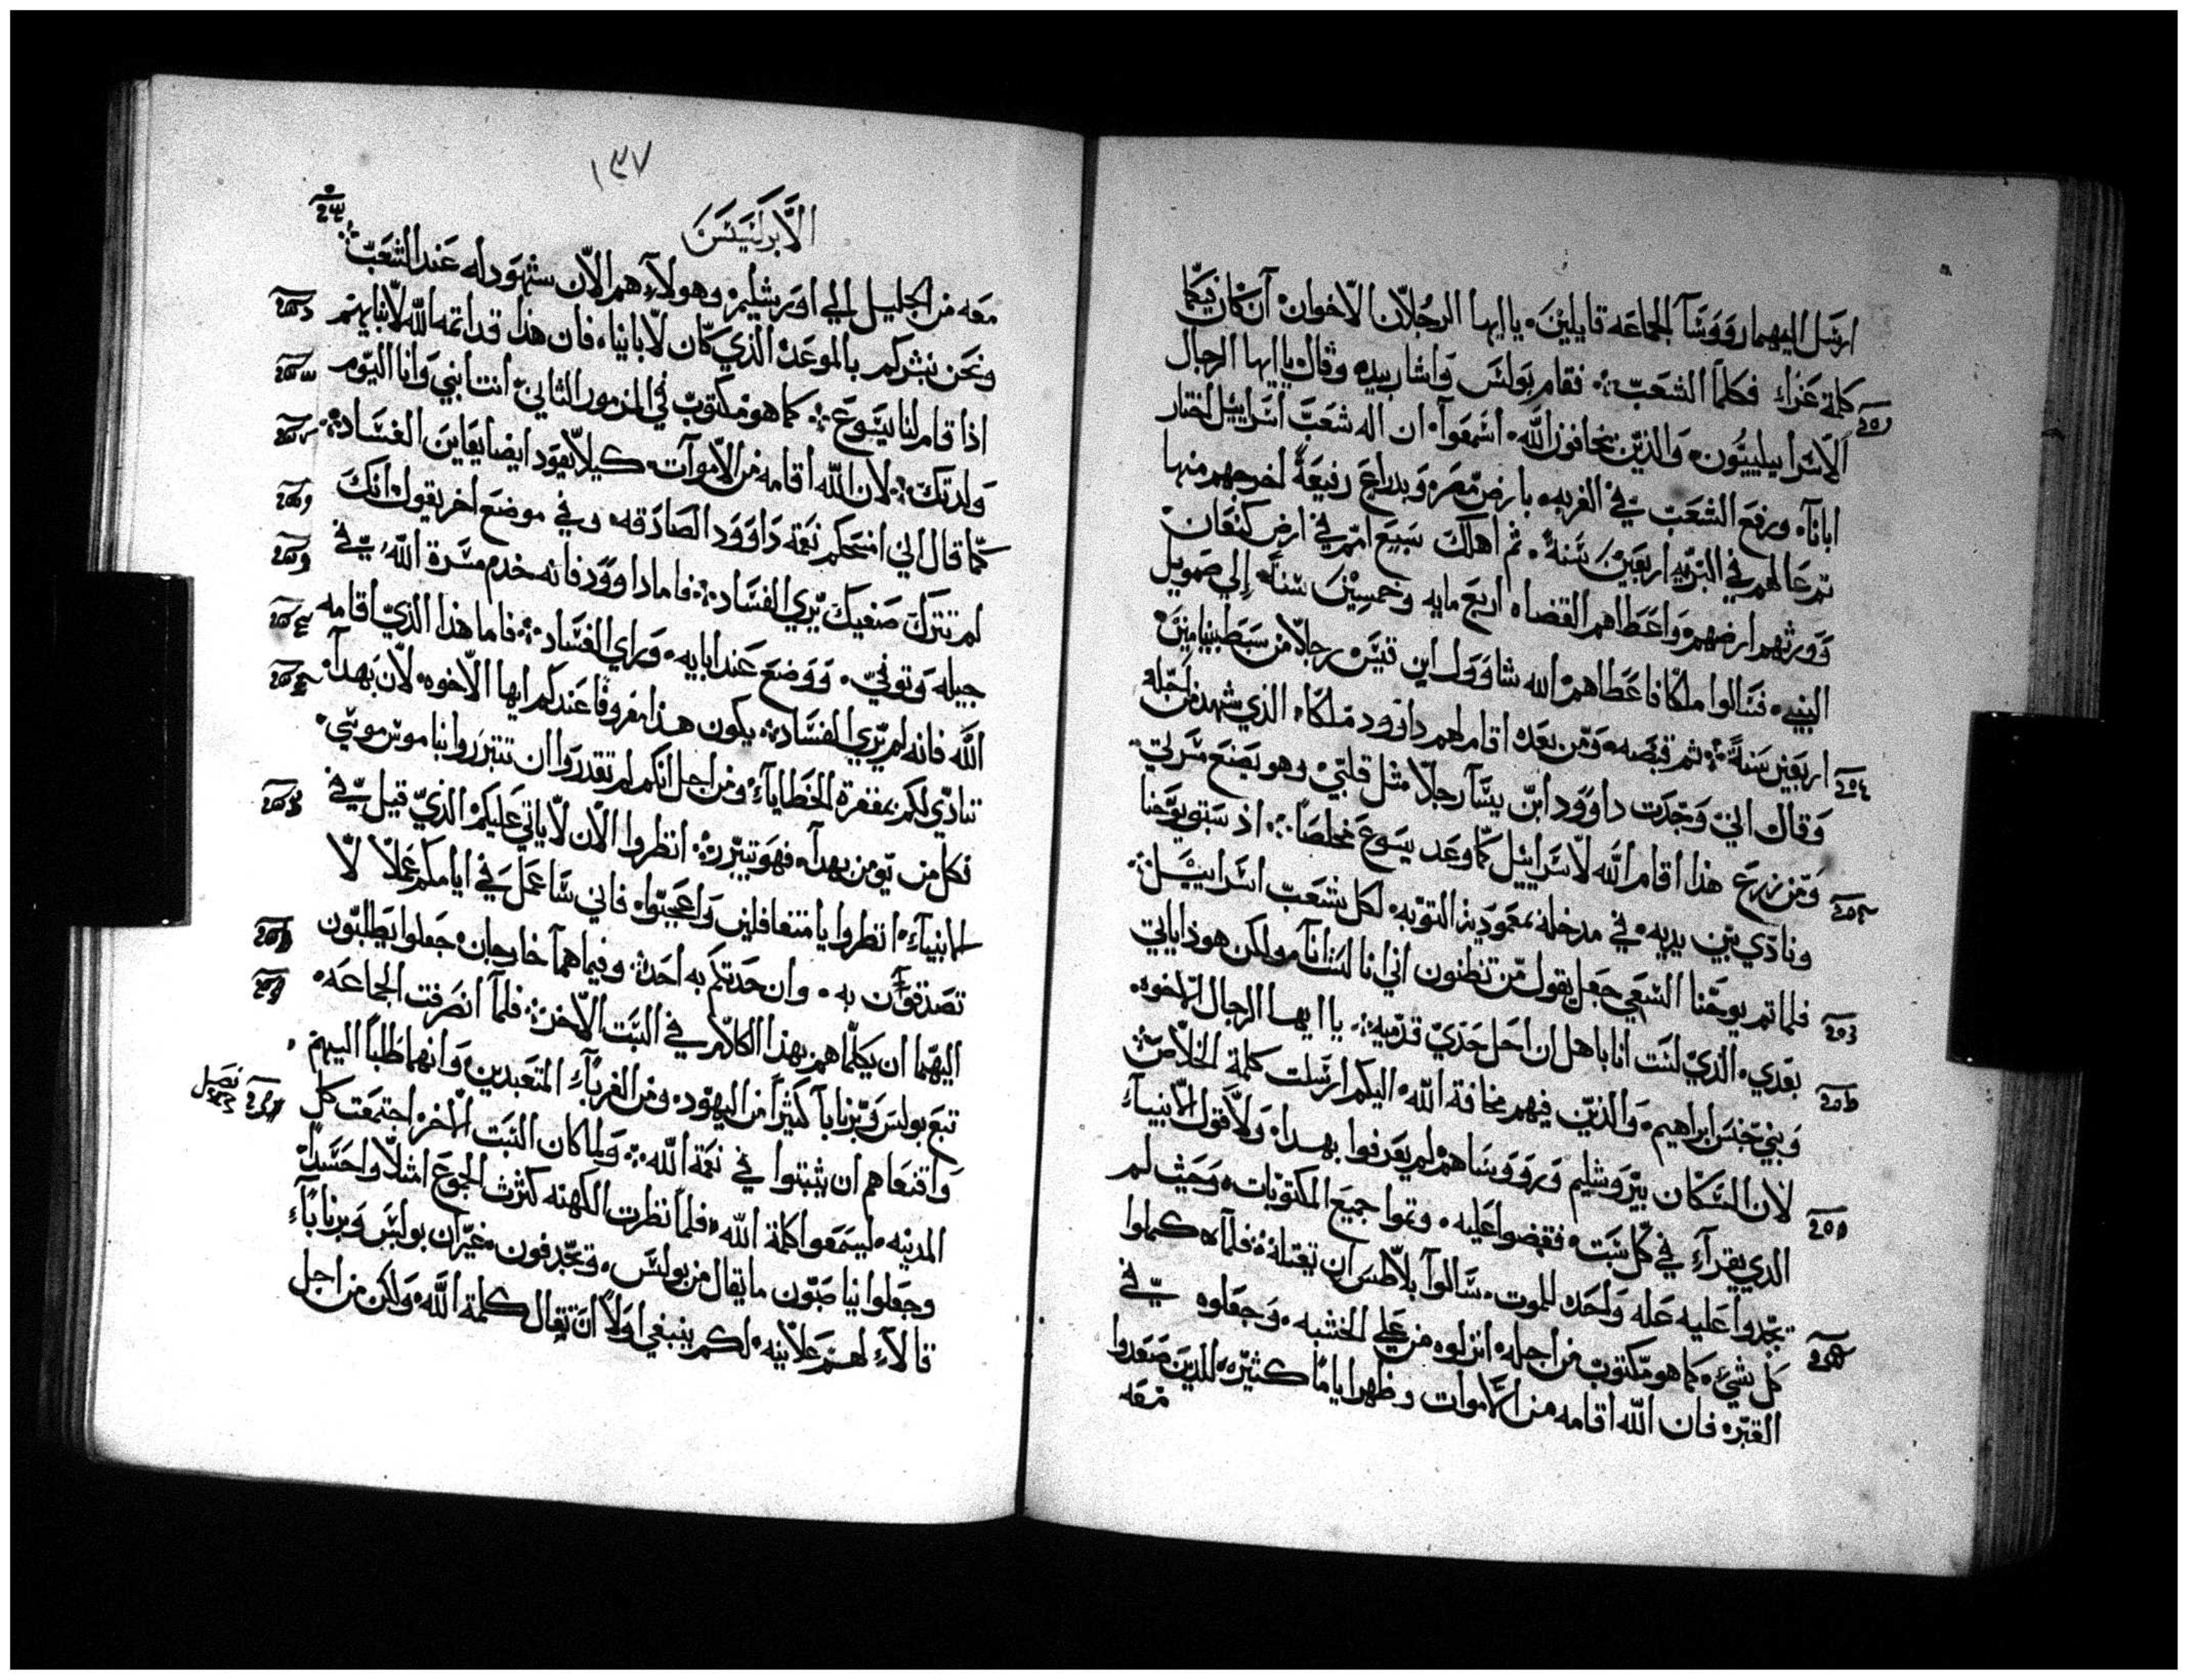 ارسل اليهما رووسآ الجماعه قايلين. ياايها الرجلان الاخوان ان كان فيكما
كلمة عزاء فكلما الشعب: فقام بولس واشار بيده وقال ياايها الرجال
الاسراييليون. والذين يخافون الله. اسمعوا. ان اله شعب اسراييل اختار
ابانآ. ورفع الشعب في الغربه. بارض مصر. وبدراع رفيعة اخرجهم منها
ثم عالهم في البريه اربعين سنة. ثم اهلك سبع امم في ارض كنعان
وورثهم ارضهم. واعطاهم القضاه اربع مايه وخمسين سنة. إلي صمويل
النبي. فسالوا ملكا فاعطاهم الله شاوول ابن قيس. رجلا من سبط بنيامين
اربعين سنة: ثم قبضه. ومن بعده اقام لهم داوود ملكا. الذي شهد من اجله
وقال اني وجدت داوود ابن يسآ رجلا مثل قلبي. وهو يصنع مسرتي
ومن زرع هذا اقام الله لاسراييل كما وعد يسوع مخلصا: اذ سبق يوحنا
ونادي بين يديه. في مدخله بمعمودية التوبه. لكل شعب اسراييل:
فلما تم يوحنا السعي جعل يقول من تظنون اني انا لست انا هو لكن هوذا ياتي
بعدي. الذي لست انا باهل ان احل حذي قدميه: ياايها الرجال الاخوه.
وبني جنس ابراهيم. والذين فيهم مخافة الله. اليكم ارسلت كلمة الخلاص:
لان السكان بيروشليم ورووساهم لم يعرفوا بهدا. ولا قول الانبياء
الدي يقراء في كل سبت. فقضوا عليه. وتموا جميع المكتوبات. وحيث لم
يجدوا عليه عله واحده للموت. سالوا بلاطس ان يقتله: فلمآ كملوا
كل شيء. كما هو مكتوب من اجله. انزلوه من علي الخشبه. وجعلوه في
القبر. فان الله اقامه من الاموات وظهر اياما كثيره. للدين صعدوا
معه
١٣٧
الابركسيس
معه من الجليل الي اورشليم. وهولاء هم الان شهود له عند الشعب:
ونحن نبشركم بالموعد الذي كان لابانيا. فان هذا قد اتمه الله لابنايهم
اذا قام لنا يسوع: كما هو مكتوب في المزمور الثاني. انت ابني وانا اليوم
ولدتك: لان الله اقامه من الاموات. كيلا يعود ايضا يعاين الفساد:
كما قال اني امنحكم نعمة داوود الصادقه. وفي موضع اخر يقول انك
لم تترك صفيك يري الفساد: فاما داوود فانه خدم مسرة الله. في
جيله وتوفي. ووضع عند ابايه. وراي الفساد: فاما هذا الذي اقامه
الله فانه لم يري الفساد: يكون هذا معروفا عندكم ايها الاخوه. لان بهدآ.
تنادي لكم بمغفرة الخطايا. ومن اجل انكم لم تقدروا ان تتبرروا بناموس موسي.
فكل من يومن بهدآ. فهو تبرر: انظروا الان لا ياتي عليكم الذي قيل في
الانبيآء. انظروا يا متغافلين واعجبوا. فاني ساعمل في ايامكم عملا لا
تصدقون به. وان حدتكم به احد: وفيما هما خارجان. جعلوا يطلبون
اليهما ان يكلماهم بهذا الكلام في السبت الاخر: فلمآ انصرفت الجماعه.
تبع بولس وبرنابا كثيرا من اليهود. ومن الغرباء المتعبدين وانهما طلبا اليهم
واقنعاهم ان يثبتوا في نعمة الله: ولما كان السبت الاخر. اجتمعت كل
فصل
المدينه. ليسمعوا كلمة الله. فلما نظرت الكهنه كثرت الجموع امتلاوا حسدا
وجعلوا يناصبون ما يقال من بولس. وتجدفون. غير ان بولس وبرنابا
قالاء لهم علانيه. لكم ينبغي اولا ان تقال كلمة الله. ولكن من اجل